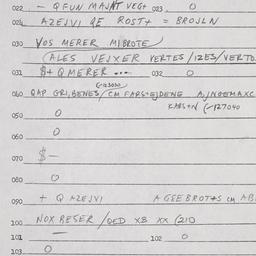 022 — QFUN MAJNT VEGT 023. O
024 AZEJVI QE ROST+ = BROJLN
030 VOS MERER MIBROTE
(ALES VEJXER VERTES/IZES/VERTO.
031 $+ QMERER ... 032 O
040 QAP GRI,BENES/CM FARS+EJDENG AJNGEMAXC
050 O
060 O
070 $—
080 O
090 + Q AZEJVI A GSEBROTAS CM AB
100 NOX BESER/DED XB XX (210
101 — 102 O
103 O